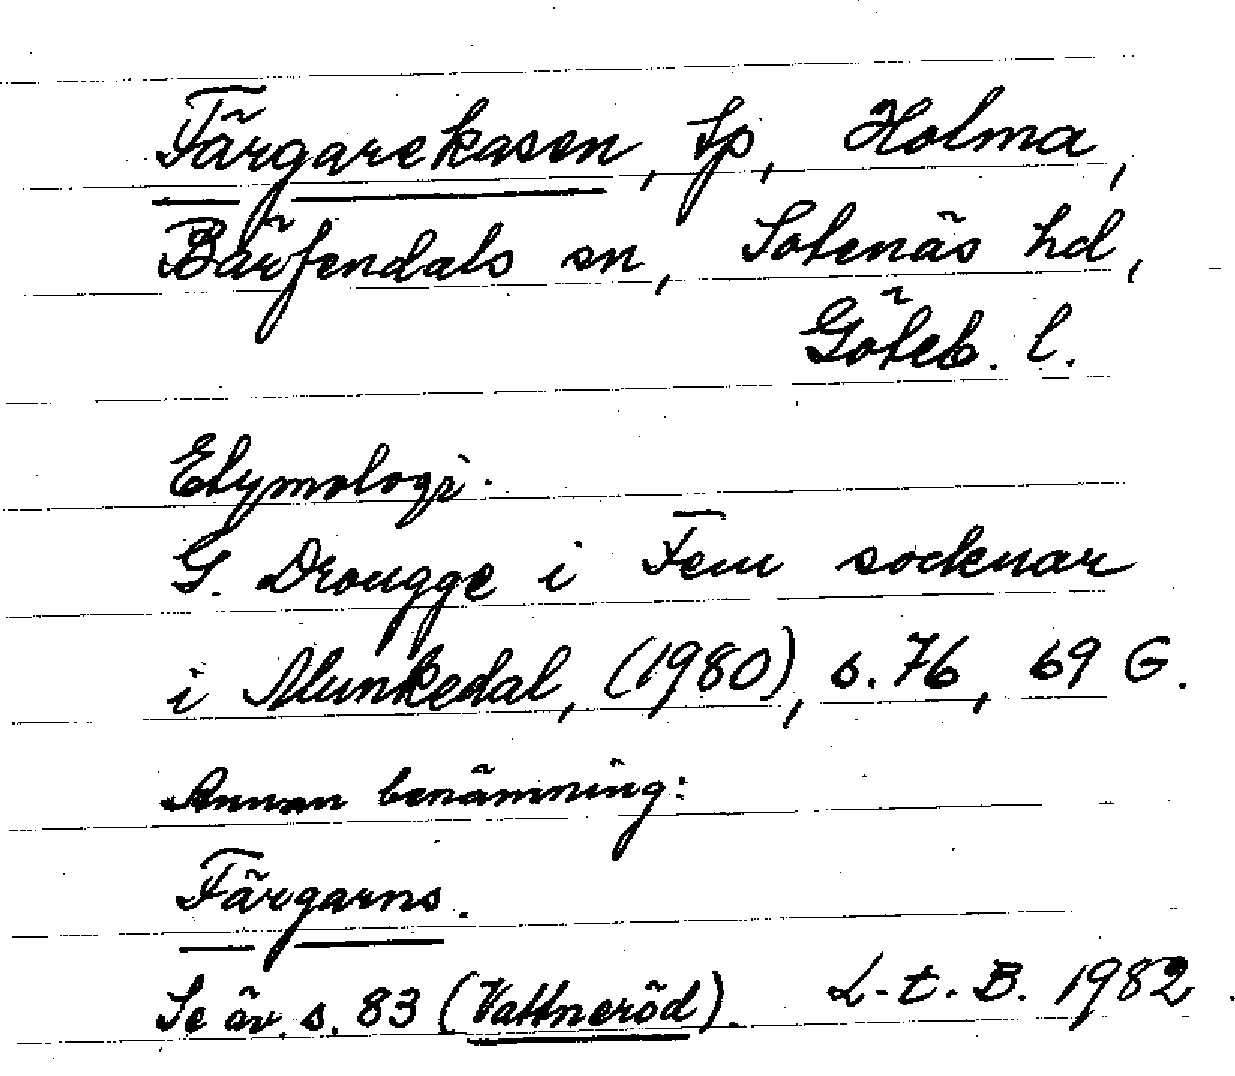 Färgarekasen, tp, Holma,
Bärfendals sn, Sotenäs hd,
Göteb. l.
Etymologi.
G. Drougge i Fem socknar
i Munkedal, (1980), s. 76, 69 G.
Annan benämning:
Färgarns.
Se äv. s. 83 (Vattneröd). L-t. B. 1982.